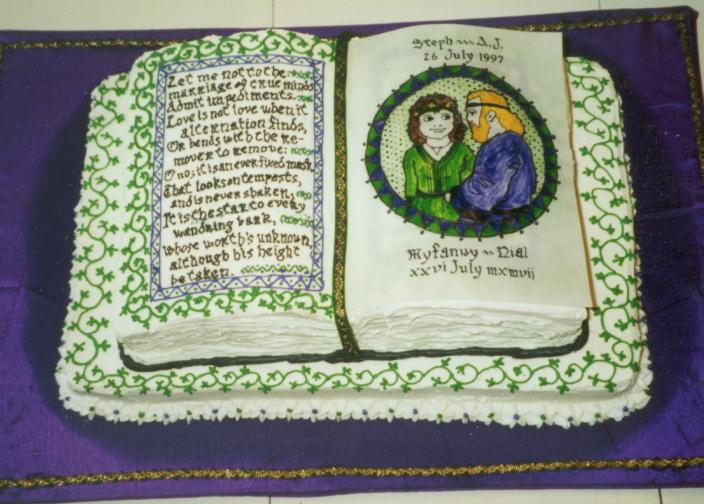 Let me not to the
marriage of true minds
Admit impediments.
Love is not love when it
alternation finds,
Or bends with the re-
mover to remove:
O no; it is an ever fixed mark
that looks on tempests,
and is never shaken,
It is the star to every
wandring bark,
whose worth's unknown,
although his height
be taken.
Steph ~ A.J.
26 July 1997
Myfanwy ~ Nial
xxvi July mxmvij